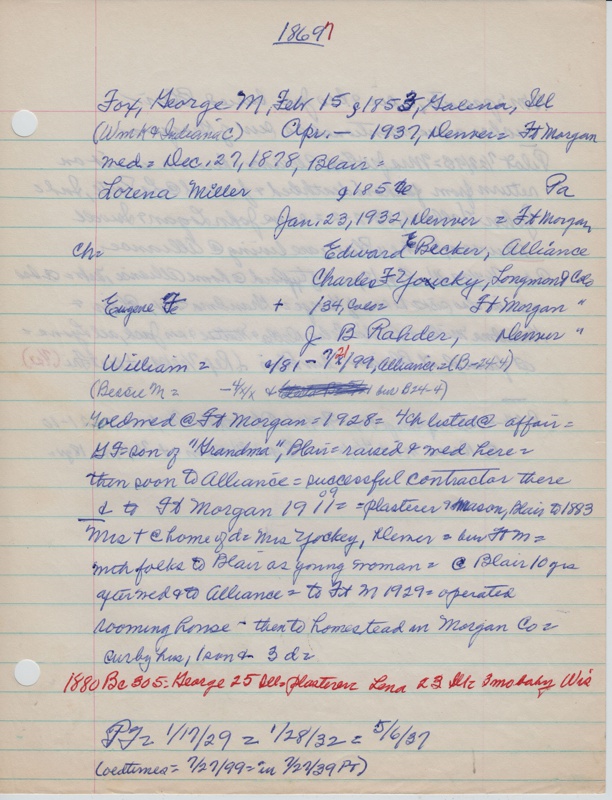 18697
Fox, George M, Feb 15, 1853, Galena, Ill
(Wm K & Indiana C) Apr. – 1937, Denver = Ft Morgan
med = Dec. 27, 1878, Blair =
Lorena Miller g 185 Pa
Jan. 23, 1932, Denver = Ft Morgan
Ch = Edward E Becker, Alliance
Charles F Yockey, Longmont Colo
Eugene + /34, Colo = Ft Morgan "
J B Rahder, Denver "
William = /81 – 7/21/99, Alliance = (B-24-4)
(Bessie M = bur B24-4)
Goldwed @ Ft Morgan = 1928 = 4 ch listed @ affair =
GF = son of "Grandma", Blair = raised & med here =
then soon to Alliance = successful contractor there
& to Ft Morgan 1911 = 09 = plasterer & mason, Blair to 1883
Mrs + @ home of d = Mrs Yockey, Denver = bur Ft M =
with folks to Blair as young woman = @ Blair 10 yrs
after med & to Alliance = to Ft M 1929 = operated
rooming house – then to homestead in Morgan Co =
sur by hus, 1 son & 3 d =
1880 Bc 305 = George 25 Ill = plasterer Lena 23 3 mo Wis
PT = 1/17/29 = 1/28/32 = 5/6/37
(oldtimes = 7/27/99 = in 7/27/39 PT)